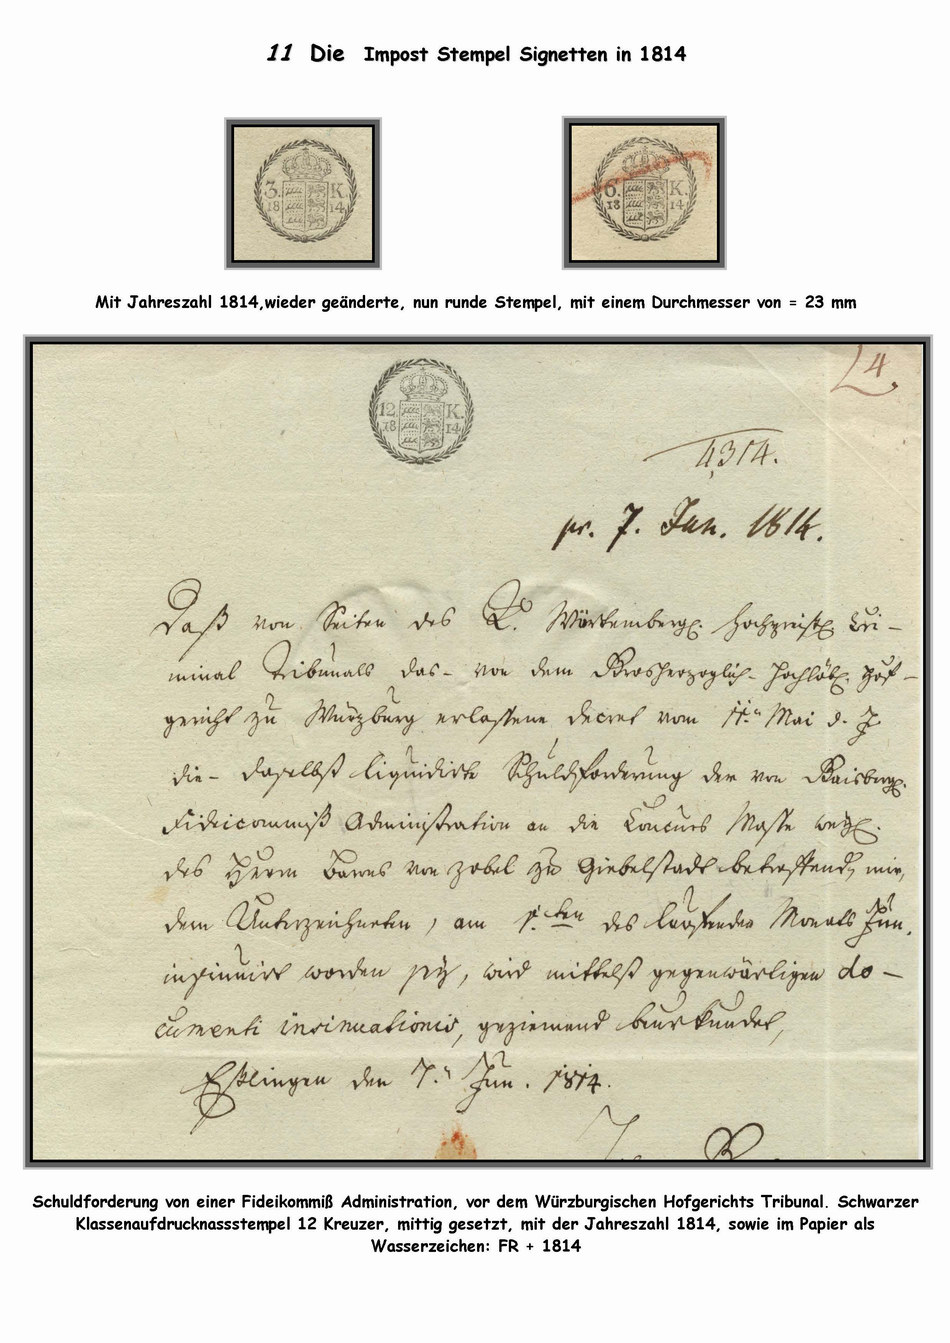 11 Die Impost Stempel Signetten in 1814
3. K.
18 14
6. K.
18 14.
Mit Jahreszahl 1814,wieder geänderte, nun runde Stempel, mit einem Durchmesser von = 23 mm
12 K.
18 14.
4.
4314.
pr. 7. Jun. 1814.
Daß von Seiten des K. Württemberg. hochpreißl. Cri-
minal Tribunals das- von dem Grosherzoglich- hochlöbl. Hof-
gericht zu Würzburg erlassene Decret vom 11.ⁿ Mai d. J.
die- daselbst liquidirte Schuldforderung der von Gaisberg.
Fideicommiß Administration an die Concurs Masse
des Herrn Barons von Zobel zu Giebelstadt betreffend, mir,
dem Unterzeichneten, am ten des laufenden Monats Jun.
insinuirt worden sey, wird mittelst gegenwärtigen do-
cumenti insinuationis, geziemend beurkundet,
Eßlingen den 7.ⁿ Jun. 1814.
Schuldforderung von einer Fideikommiß Administration, vor dem Würzburgischen Hofgerichts Tribunal. Schwarzer
Klassenaufdrucknassstempel 12 Kreuzer, mittig gesetzt, mit der Jahreszahl 1814, sowie im Papier als
Wasserzeichen: FR + 1814